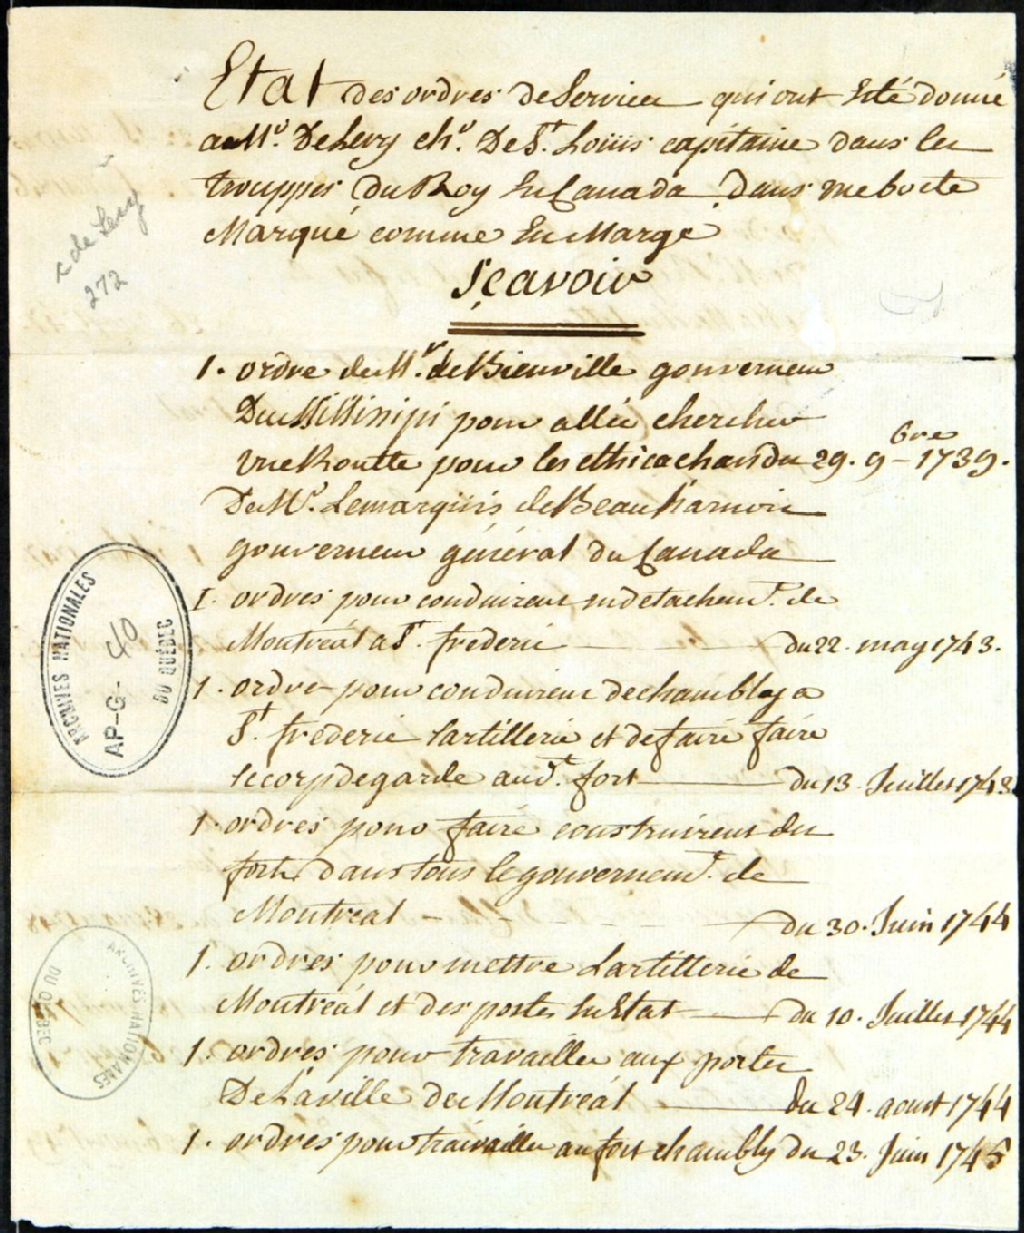 Etat des ordres de Service qui ont Eté donné
a Mr. De Lery chr. De St. Loüis capitaine dans les
trouppes du Roy En Canada dans une boete
Marqué comme En Marge
Sçavoir
c de Lery
272
1. ordre de Mr. de Bienville gouverneur
Du Missisipi pour aller chercher
une Routte pour les chicachas du 29. 9bre 1739.
De Mr. Le marquis de Beauharnois
gouverneur général du Canada
1. ordres pour conduire un detachemt. de
Montréal a St. frederic du 22. may 1743.
1. ordre pour conduire de chambly a
St. frederic Lartillerie et de faire faire
le corp de garde au dt. fort du 13. Juillet 1743
1. ordres pour faire construire des
forts dans tous le gouvernemt. de
Montreal du 30. Juin 1744
1. ordres pour mettre Lartillerie de
Montréal et des postes En Etat du 10. Juillet 1744
1. ordres pour travailler aux portes
De La ville de Montréal du 24. aoust 1744
1. ordres pour travailler au fort chambly du 23. Juin 1745
ARCHIVES NATIONALES
AP-G- 40
DU QUÉBEC
ARCHIVES NATIONALES
DU QUÉBEC